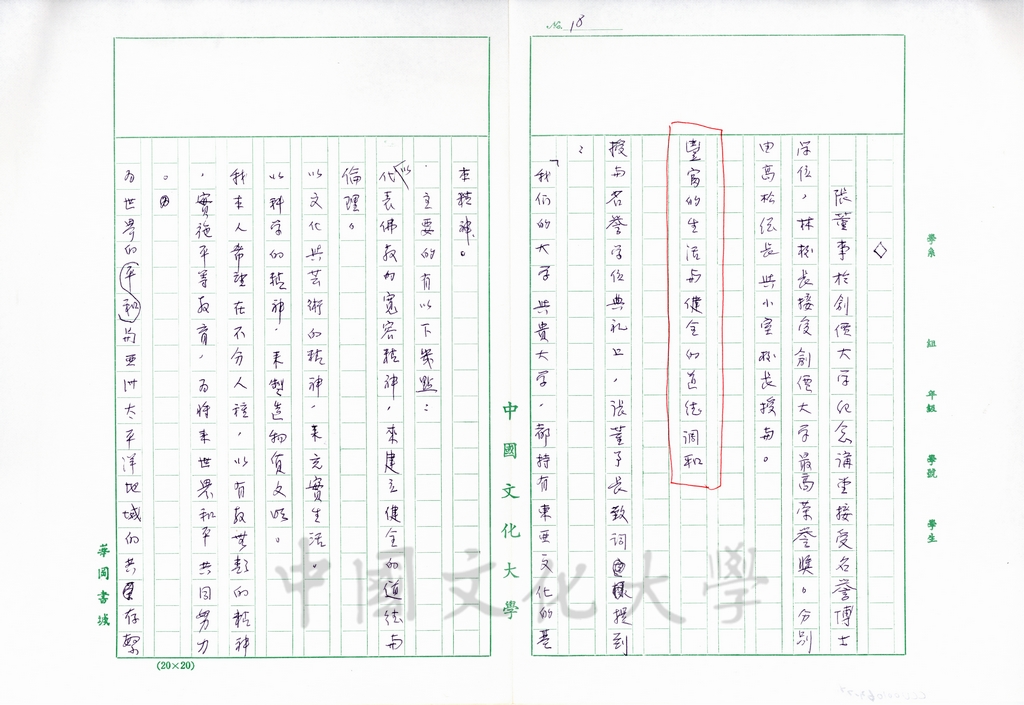 No. 18
◇
張董事於創價大学纪念講堂接受名誉博士
学位，林校长接受創價大学最高荣誉獎。分别
由高松经长與小室校长授与。
豊富的生活与健全的道德调和
授与名誉学位典礼上，张董事长致词提到
：
「我们的大学與貴大学，都持有東亜文化的基
本精神。
主要的有以下幾點：
以代表佛教的宽容精神，來建立健全的道德与
倫理。
以文化與芸術的精神，来充實生活。
以科学的精神，来製造物质文明。
我本人希望在不分人種，以有教無類的精神
，實施平等教育，为将来世界和平共同努力
。
为世界的平和与亜洲太平洋地域的共存繁
中國文化大學
華岡書城
(20×20)
學系
組
年級
學號
學生
中國文化大學